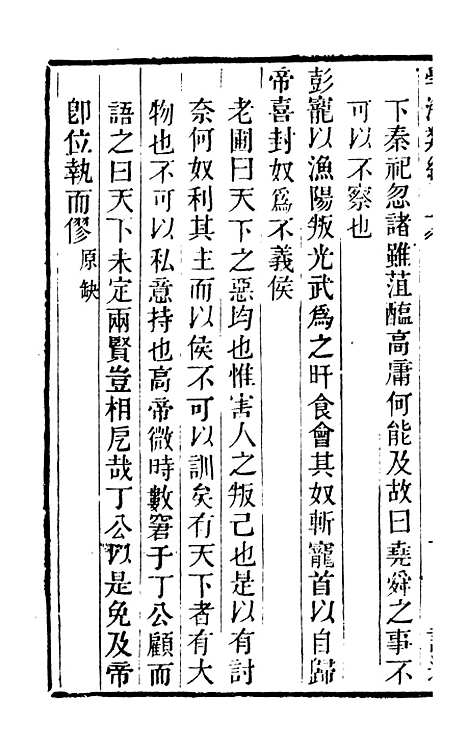 下秦祀忽諸雖葅醢高庸何能及故曰堯舜之事不
可以不察也
彭寵以漁陽叛光武爲之旰食會其奴斬寵首以自歸
帝喜封奴爲不義侯
老圃曰天下之惡均也惟害人之叛己也是以有討
奈何奴利其主而以侯不可以訓矣有天下者有大
物也不可以私意持也高帝微時數窘于丁公顧而
語之曰天下未定兩賢豈相戹哉丁公以是免及帝
卽位執而僇原缺